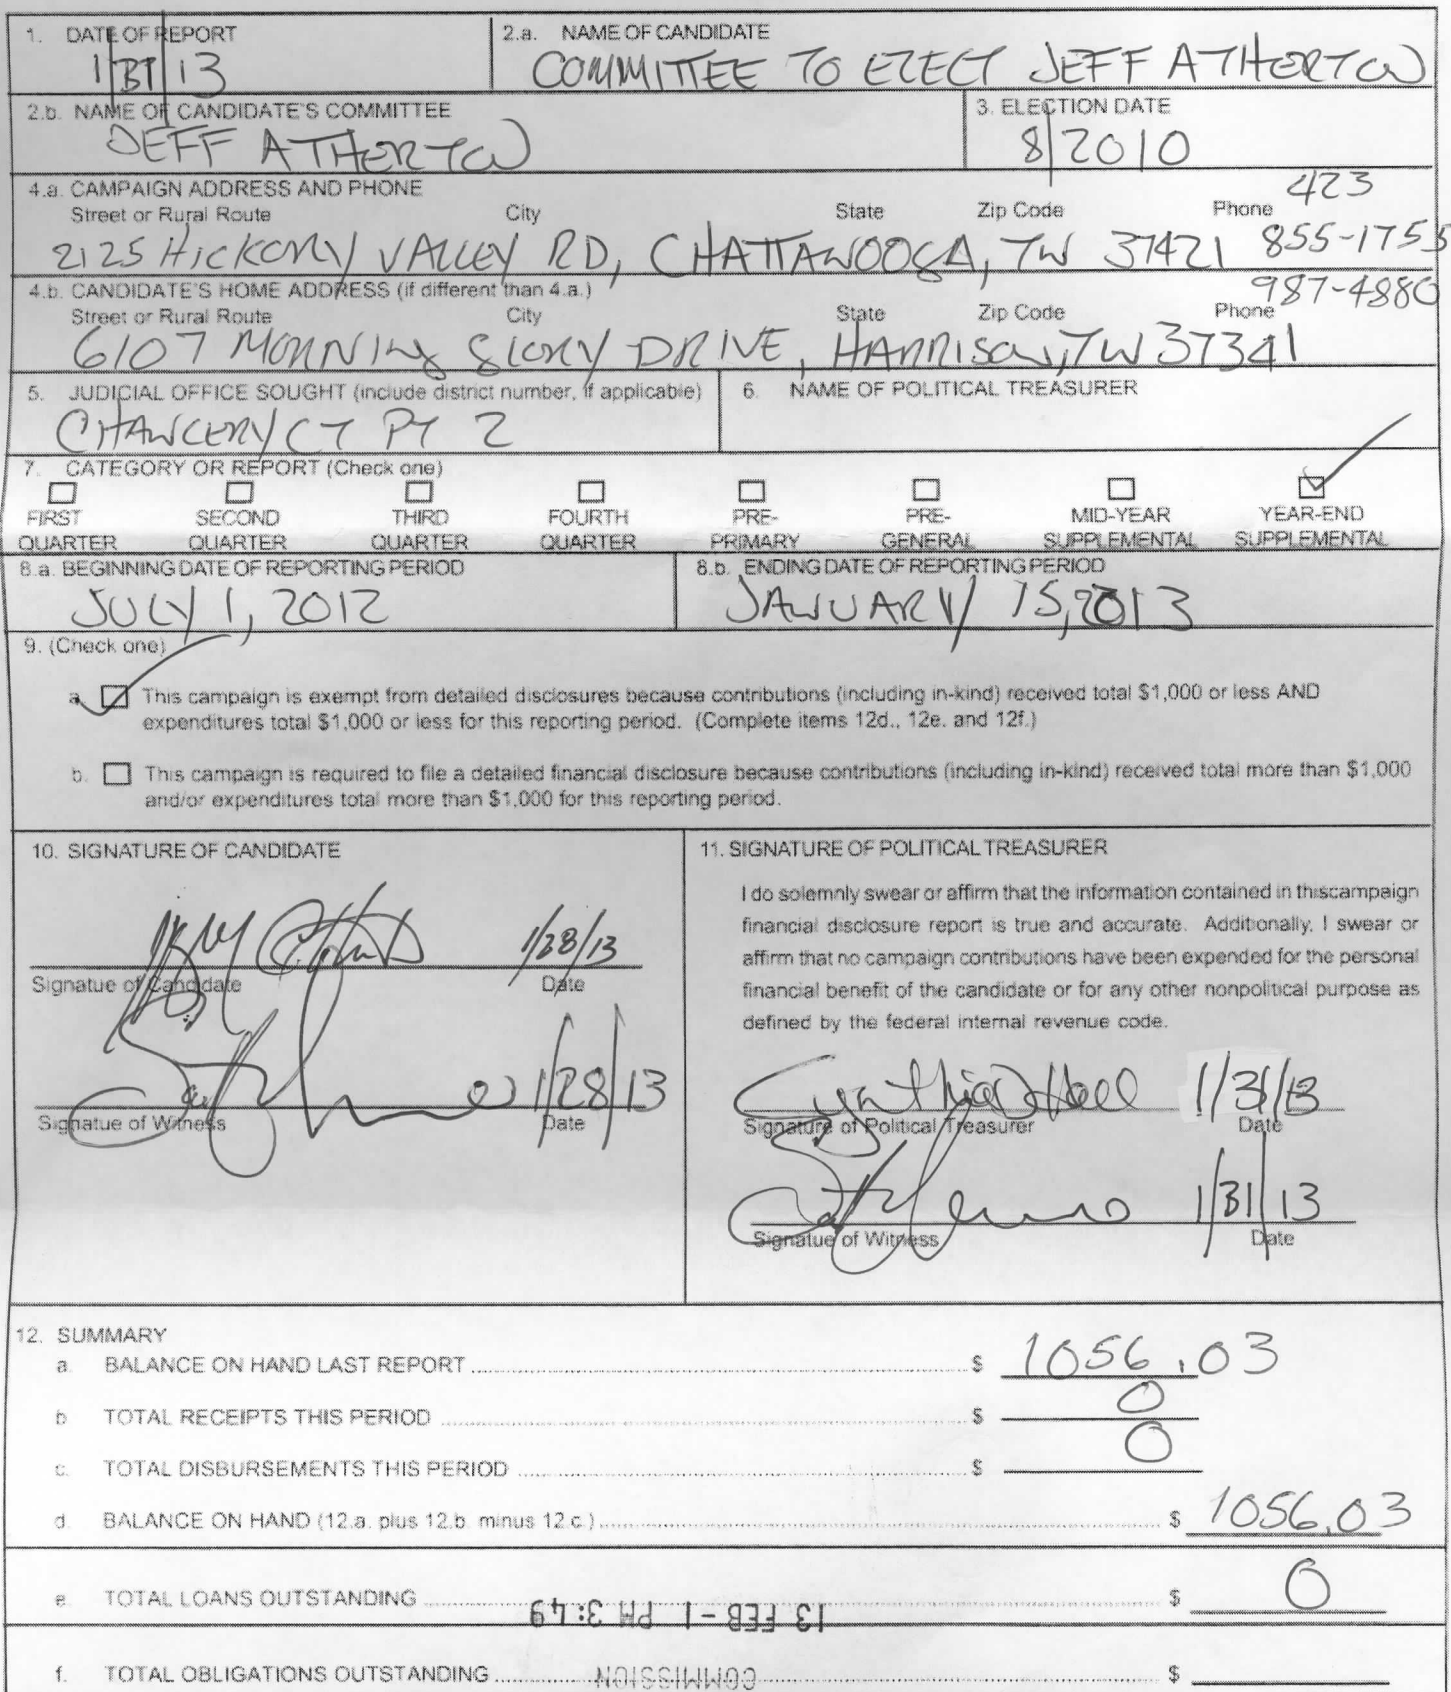 1. DATE OF REPORT
1/31/13
2.a. NAME OF CANDIDATE
COMMITTEE TO ELECT JEFF ATHERTON
2.b. NAME OF CANDIDATE'S COMMITTEE
JEFF ATHERTON
3. ELECTION DATE
8/2010
4.a. CAMPAIGN ADDRESS AND PHONE
Street or Rural Route City State Zip Code Phone 423
2125 HICKORY VALLEY RD, CHATTANOOGA, TN 37421 855-1755
4.b. CANDIDATE'S HOME ADDRESS (if different than 4.a.) 987-4880
Street or Rural Route City State Zip Code Phone
6107 MORNING GLORY DRIVE, HARRISON, TN 37341
5. JUDICIAL OFFICE SOUGHT (include district number, if applicable)
CHANCERY CT PT 2
6. NAME OF POLITICAL TREASURER
7. CATEGORY OR REPORT (Check one)
FIRST QUARTER
SECOND QUARTER
THIRD QUARTER
FOURTH QUARTER
PRE-PRIMARY
PRE-GENERAL
MID-YEAR SUPPLEMENTAL
YEAR-END SUPPLEMENTAL
8.a. BEGINNING DATE OF REPORTING PERIOD
JULY 1, 2012
8.b. ENDING DATE OF REPORTING PERIOD
JANUARY 15, 2013
9. (Check one)
a. This campaign is exempt from detailed disclosures because contributions (including in-kind) received total $1,000 or less AND
expenditures total $1,000 or less for this reporting period. (Complete items 12d., 12e. and 12f.)
b. This campaign is required to file a detailed financial disclosure because contributions (including in-kind) received total more than $1,000
and/or expenditures total more than $1,000 for this reporting period.
10. SIGNATURE OF CANDIDATE
1/28/13
Signatue of Candidate Date
1/28/13
Signatue of Witness Date
11. SIGNATURE OF POLITICAL TREASURER
I do solemnly swear or affirm that the information contained in thiscampaign
financial disclosure report is true and accurate. Additionally, I swear or
affirm that no campaign contributions have been expended for the personal
financial benefit of the candidate or for any other nonpolitical purpose as
defined by the federal internal revenue code.
Cynthia D Hall 1/31/13
Signature of Political Treasurer Date
1/31/13
Signatue of Witness Date
12. SUMMARY
a. BALANCE ON HAND LAST REPORT $ 1056.03
b. TOTAL RECEIPTS THIS PERIOD $ 0
c. TOTAL DISBURSEMENTS THIS PERIOD $ 0
d. BALANCE ON HAND (12.a. plus 12.b. minus 12.c.) $ 1056.03
e. TOTAL LOANS OUTSTANDING $ 0
13 FEB -1 PM 3:49
f. TOTAL OBLIGATIONS OUTSTANDING $
COMMISSION